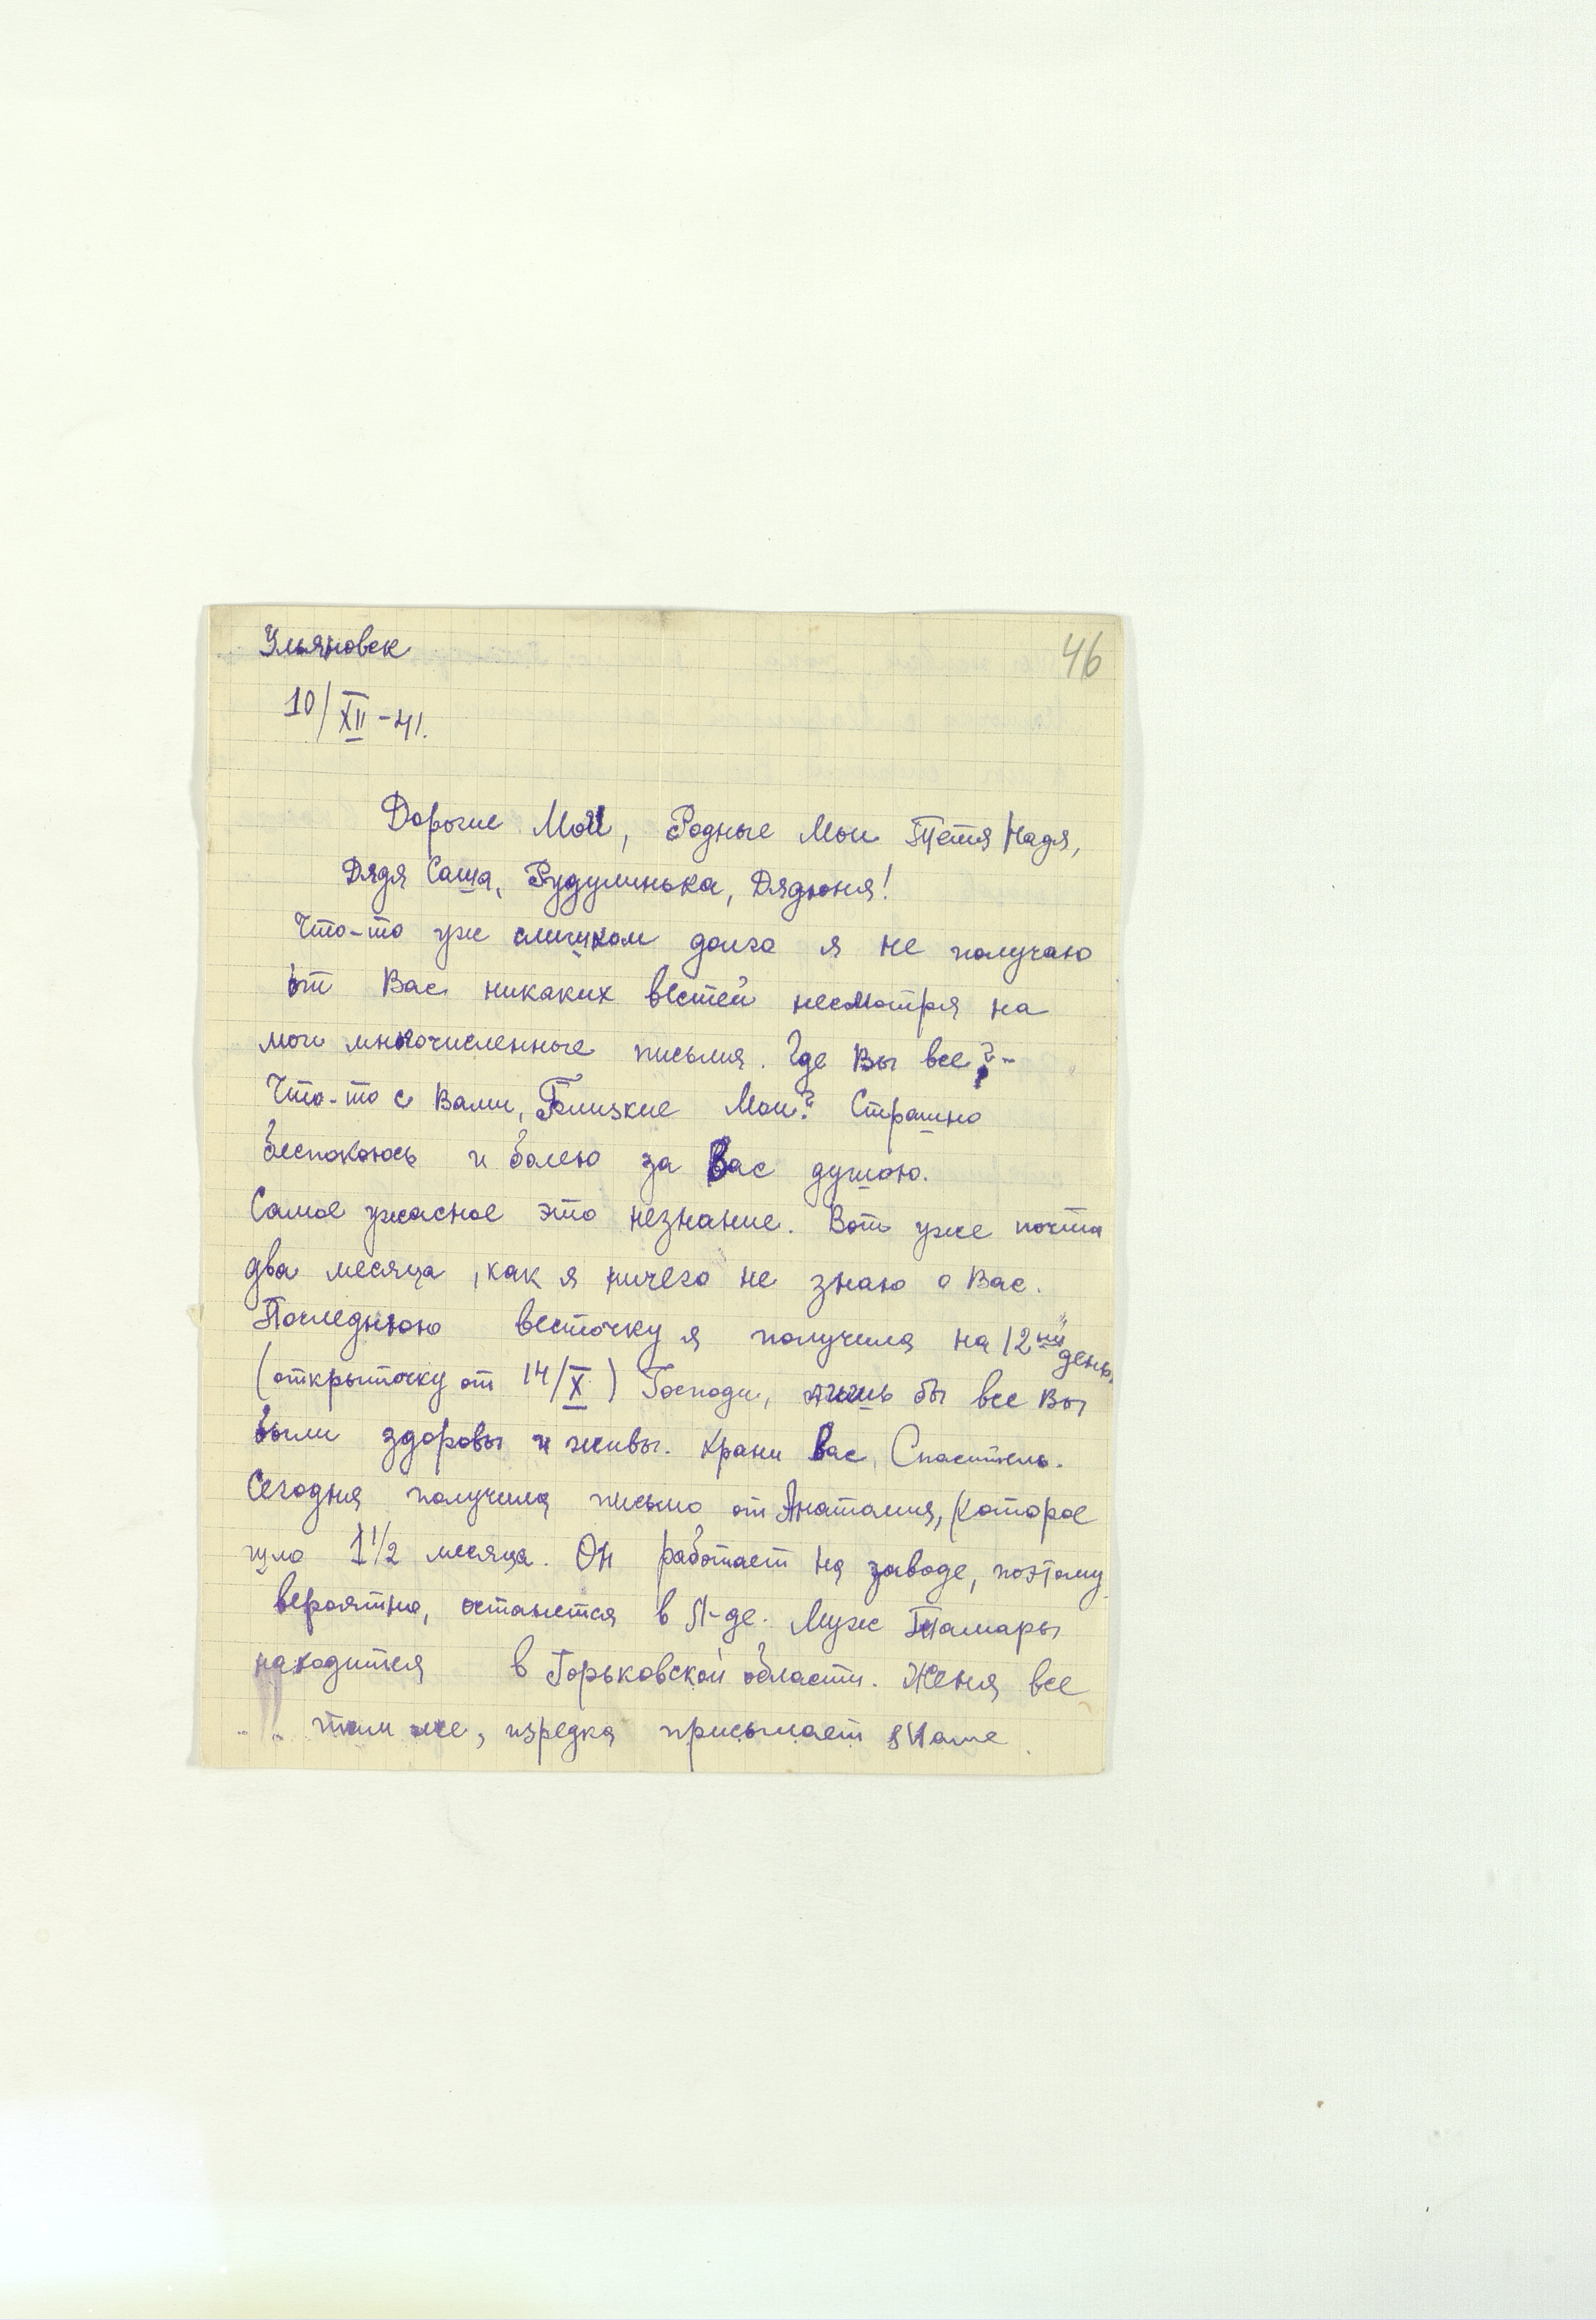 Ульяновск
46
10/XII-41.
Дорогие Мои, Родные Мои Тетя Надя,
Дядя Саша, Рудулинька, Дядюня!
Что-то уж слишком долго я не получаю
от Вас никаких вестей несмотря на
мои многочисленные письма. Где Вы все? -
Что-то с Вами, Близкие Мои? Страшно
беспокоюсь и болею за Вас душою.
Самое ужасное это незнание. Вот уже почти
два месяца, как я ничего не знаю о Вас.
Последнюю весточку я получила на 12ый день
(открыточку от 14/X) Господи, лишь бы все Вы
были здоровы и живы. Храни Вас, Спаситель.
Сегодня получила письмо от Анатолия, которое
шло 1 1/2 месяца. Он работает на заводе, поэтому
вероятно, останется в Л-де. Муж Тамары
находится в Горьковской области. Женя все
там же, изредка присылает